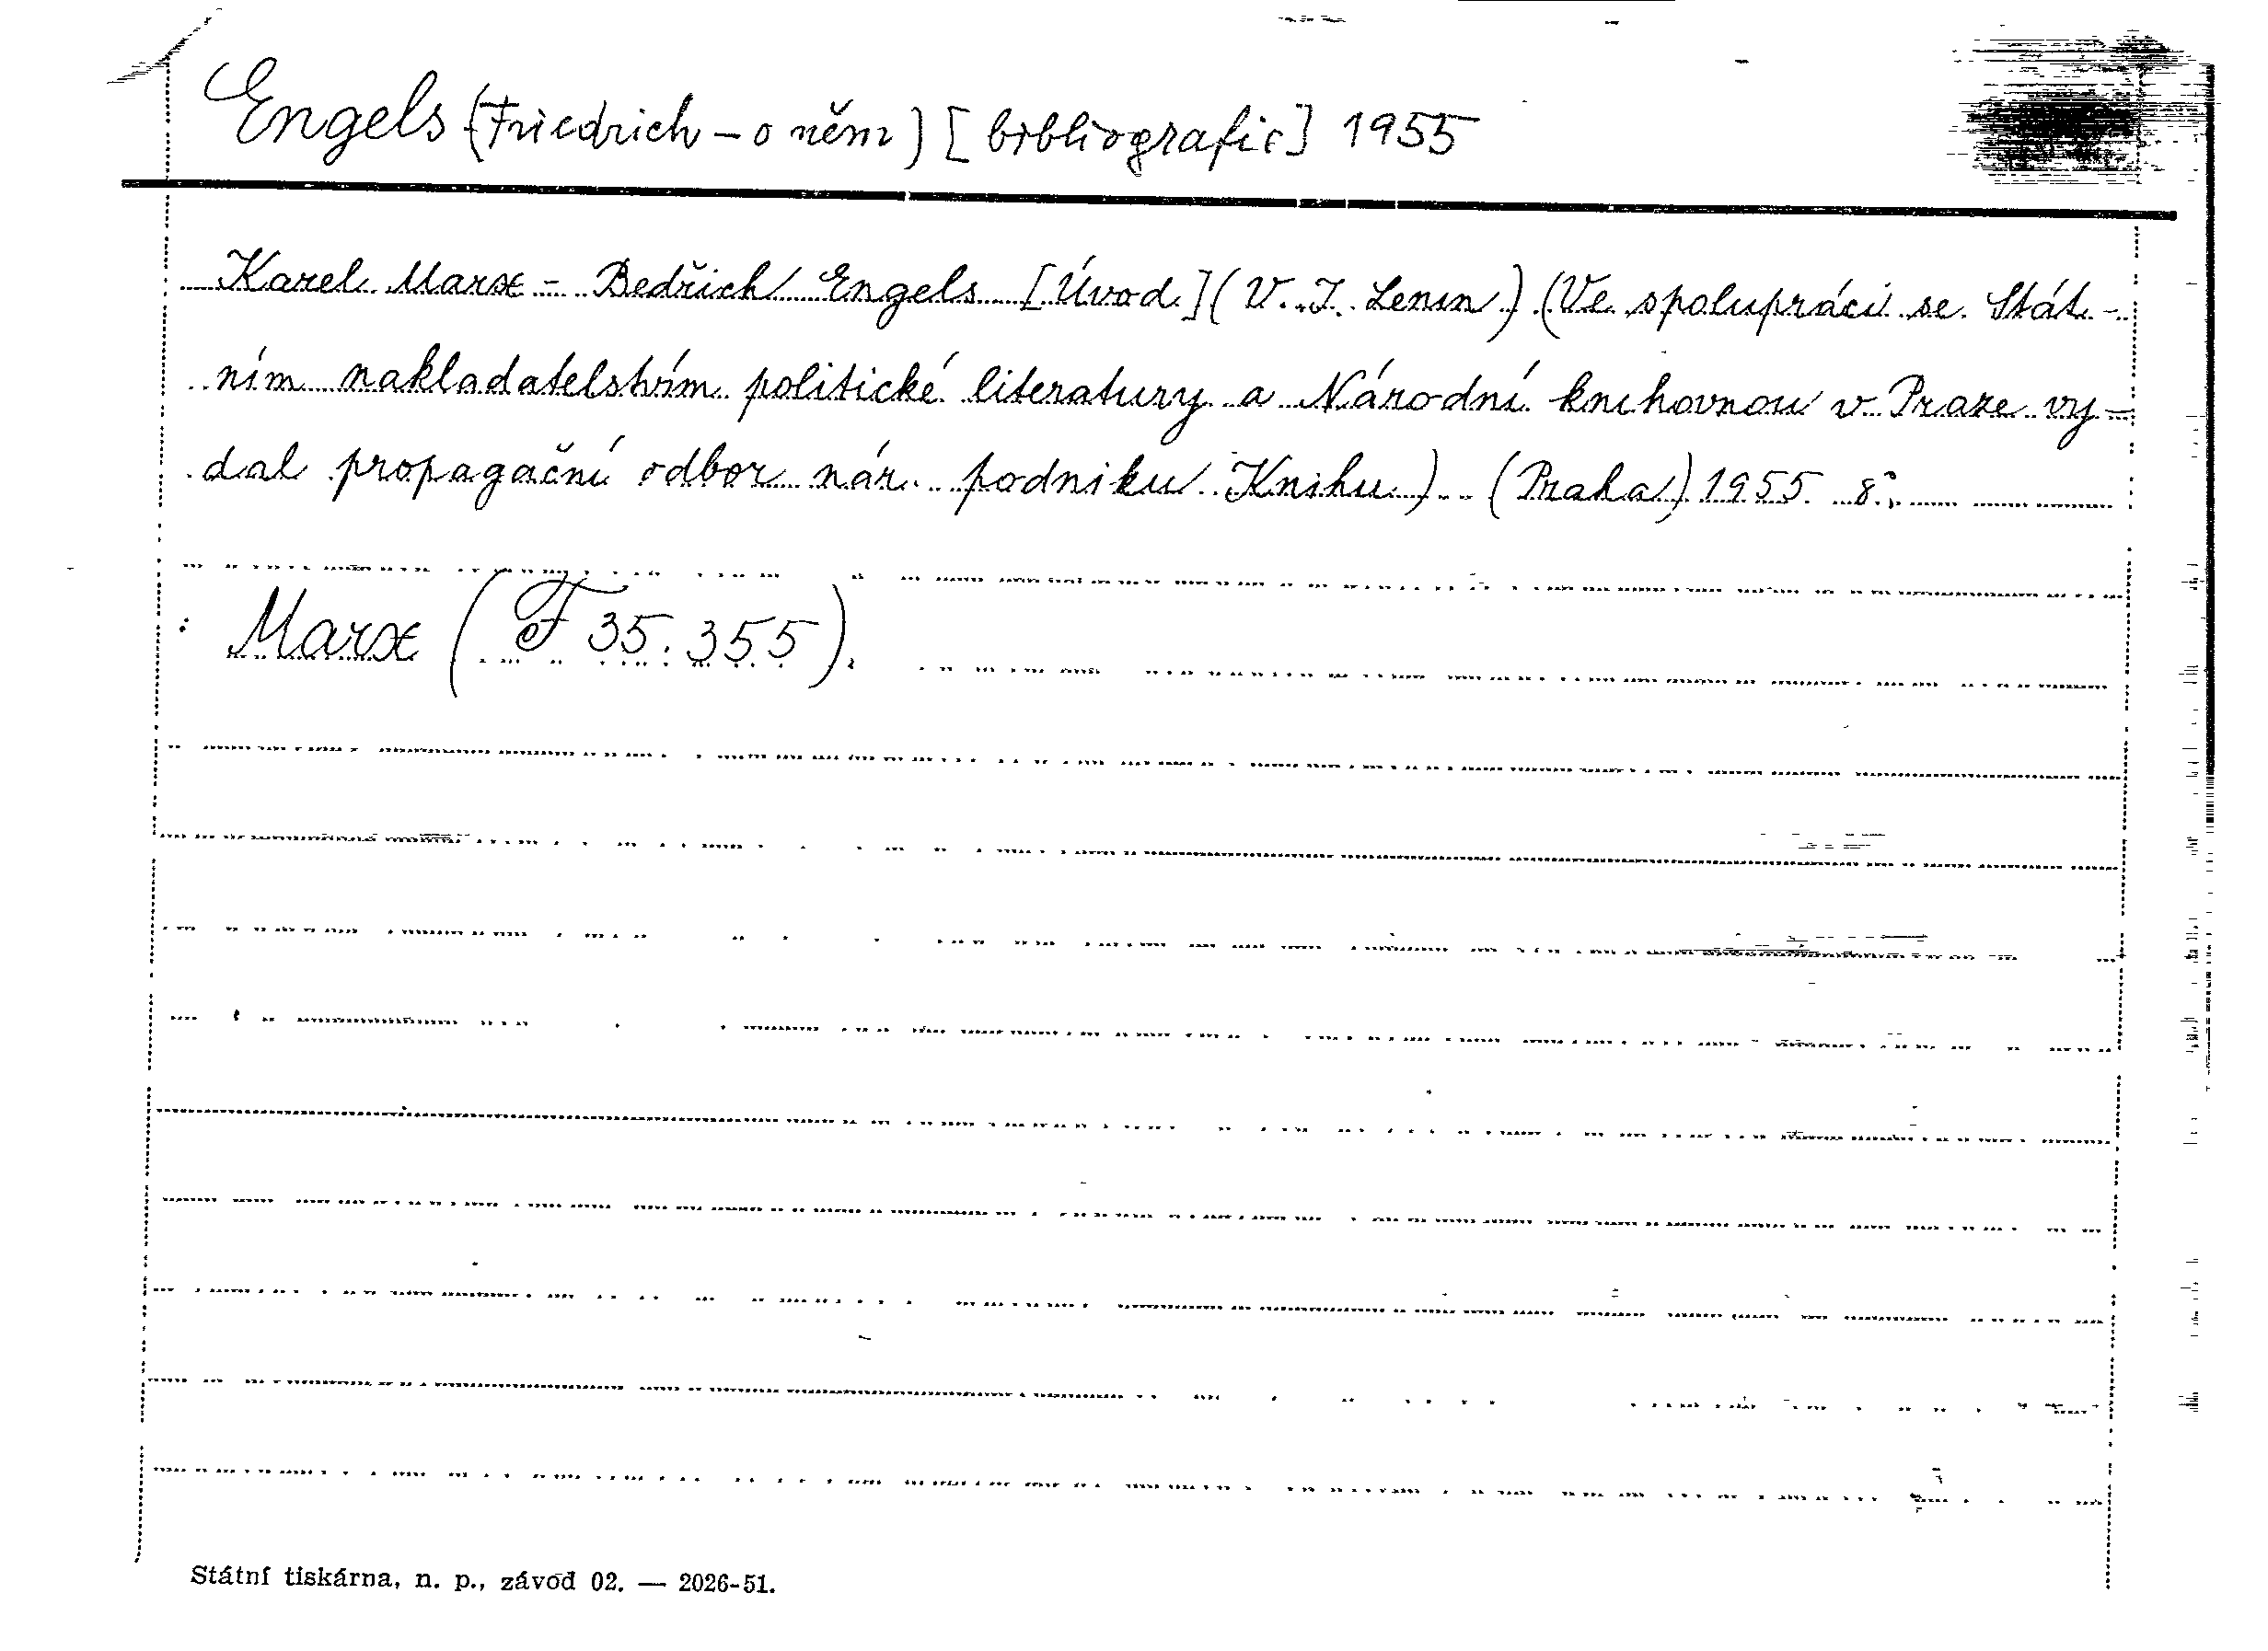 Engels (Friedrich – o něm) [bibliografie] 1955
Karel Marx – Bedřich Engels [Úvod] (V. I. Lenin) (Ve spolupráci se Stát-
ním nakladatelstvím politické literatury a Národní knihovnou v Praze vy-
dal propagační odbor nár. podniku Knihu) (Praha) 1955 8°;
: Marx (F 35.355).
Státní tiskárna, n. p., závod 02. — 2026-51.